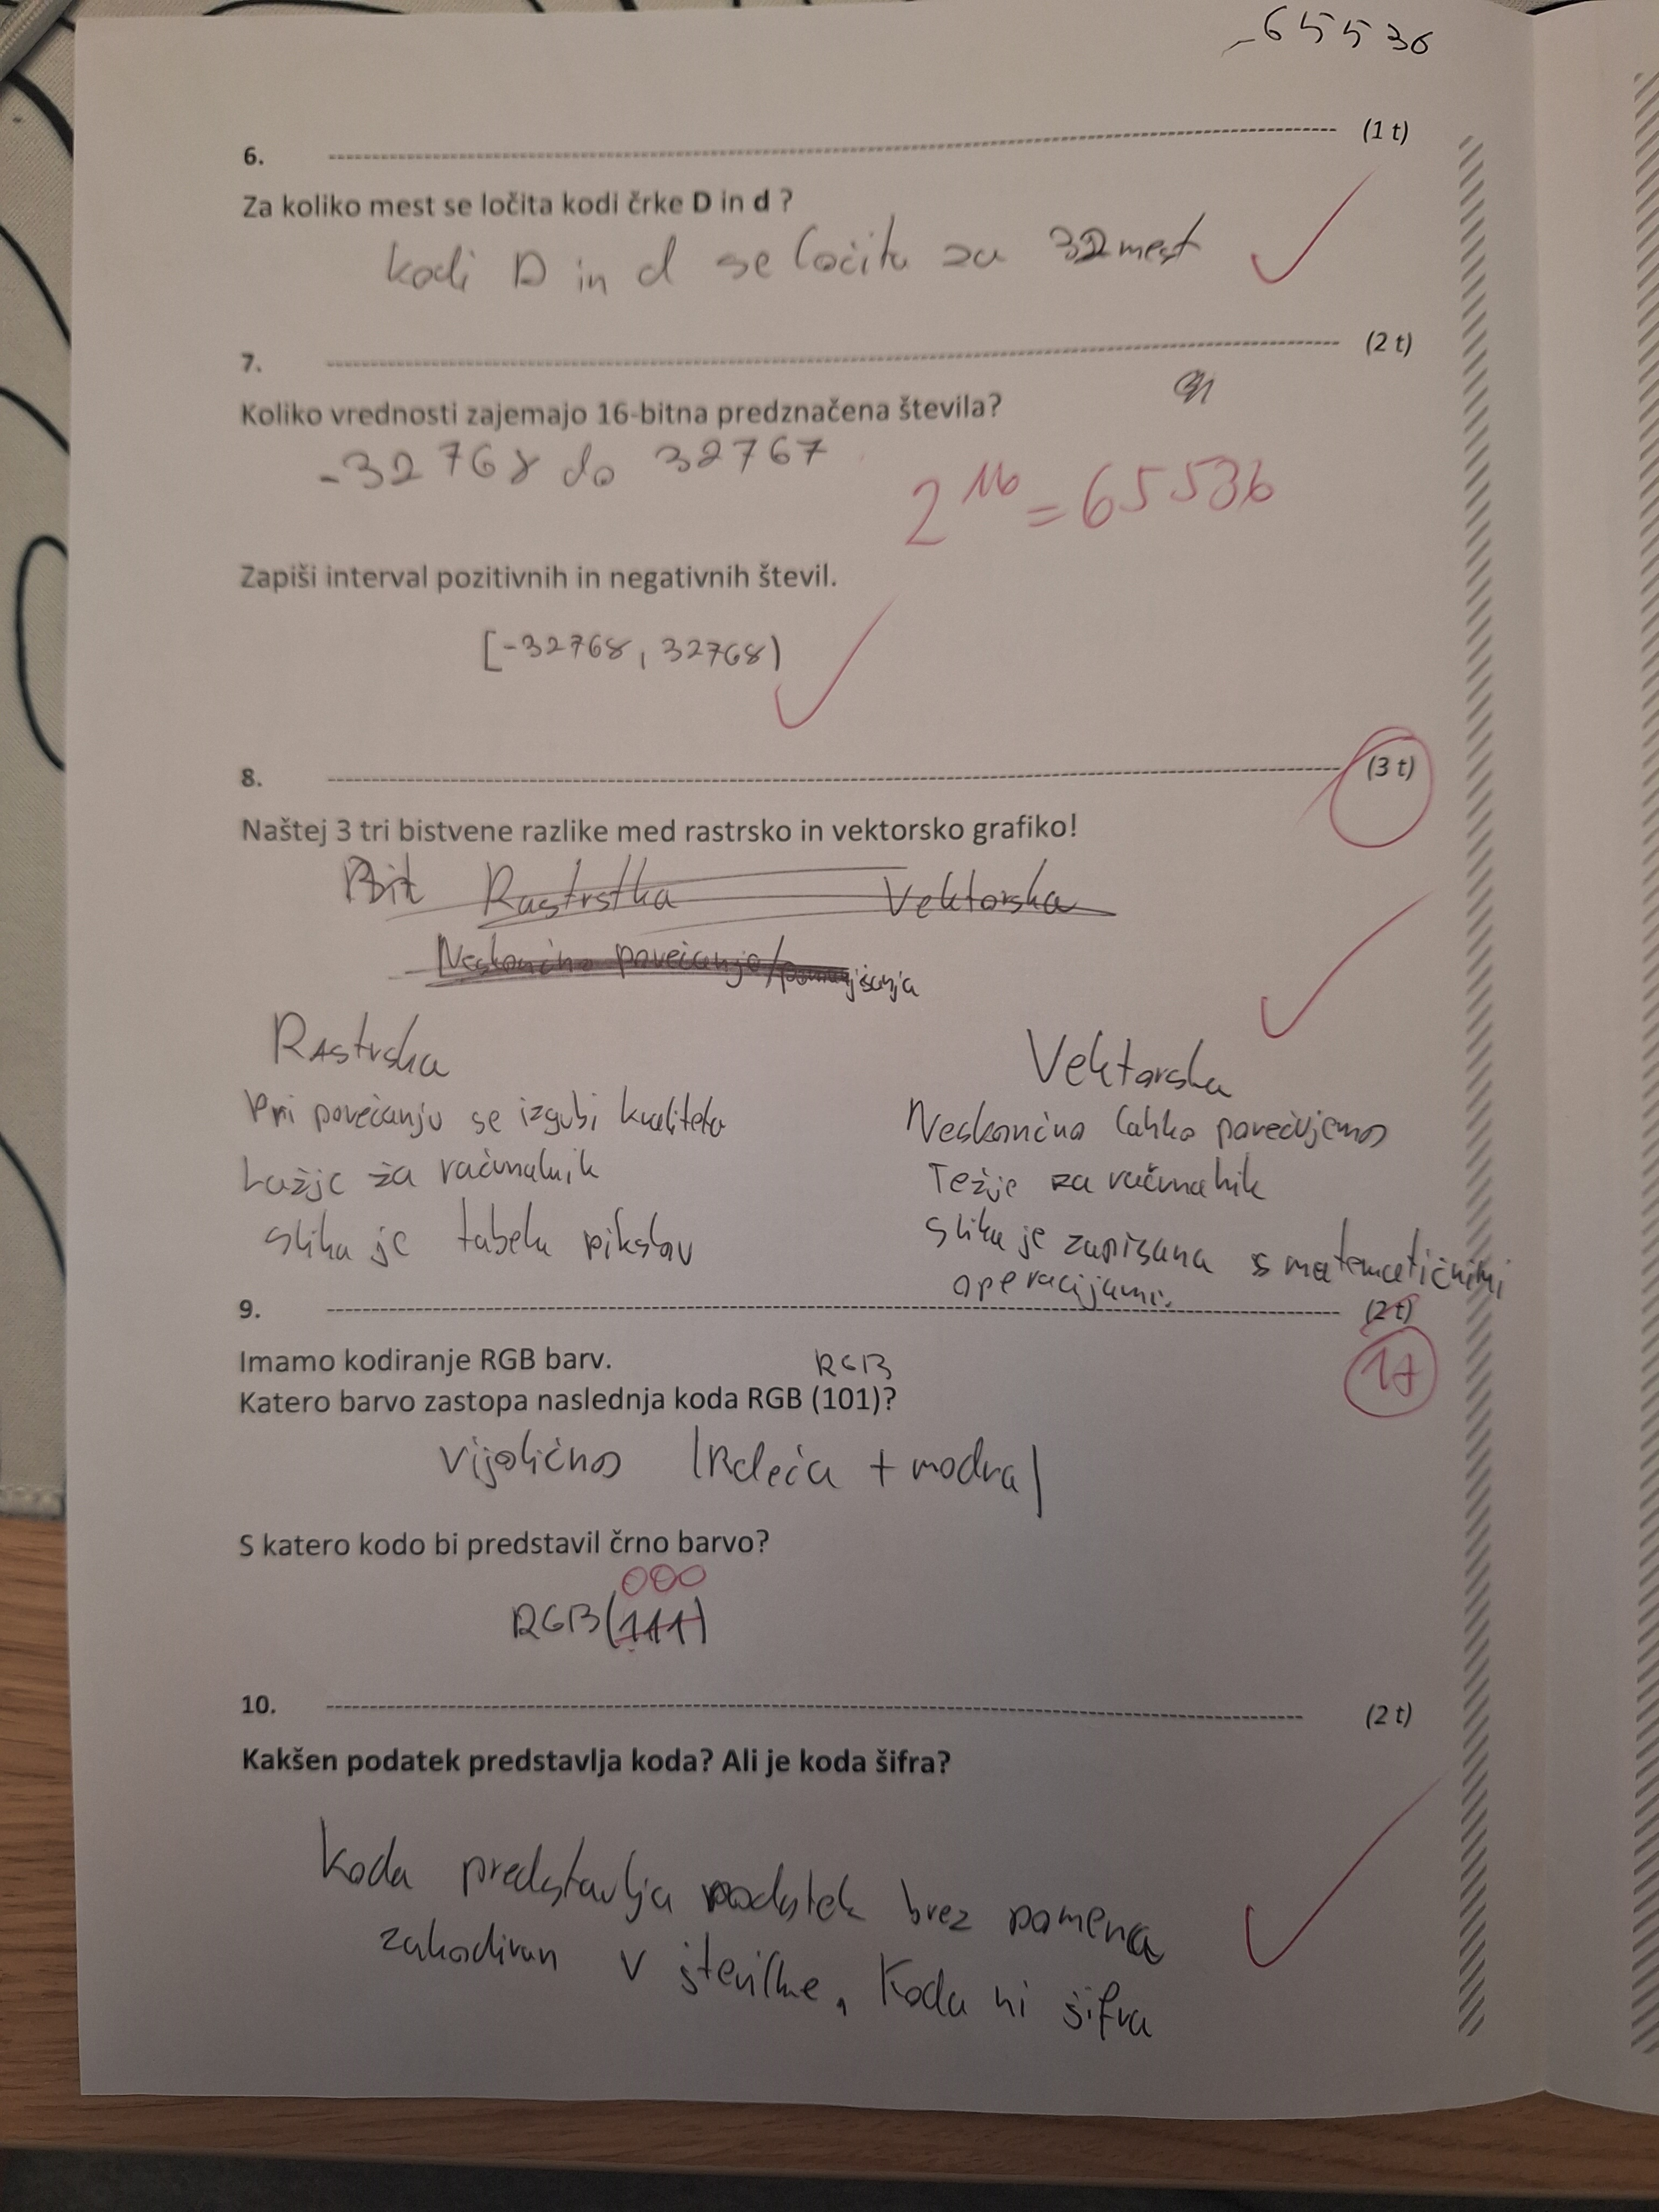 -65536
6. (1 t)
Za koliko mest se ločita kodi črke D in d ?
kodi D in d se ločita za 32 mest
7. (2 t)
Koliko vrednosti zajemajo 16-bitna predznačena števila?
-32768 do 32767
2^16 = 65536
Zapiši interval pozitivnih in negativnih števil.
[-32768, 32768)
8. (3 t)
Naštej 3 tri bistvene razlike med rastrsko in vektorsko grafiko!
Bit Rastrstka Vektorska
Neskončno povečanje/pomanjšanja
Rastrska
Vektorska
Pri povečanju se izgubi kvaliteta
Neskončno lahko povečujemo
Lažje za računalnik
Težje za računalnik
slika je tabela pikslov
Slika je zapisana s matematičnimi
operacijami.
9. (2 t)
1t
Imamo kodiranje RGB barv.
RGB
Katero barvo zastopa naslednja koda RGB (101)?
vijolično (Rdeča + modra)
S katero kodo bi predstavil črno barvo?
000
RGB(111)
10. (2 t)
Kakšen podatek predstavlja koda? Ali je koda šifra?
Koda predstavlja podatek brez pomena
zakodiran v številke, Koda ni šifra